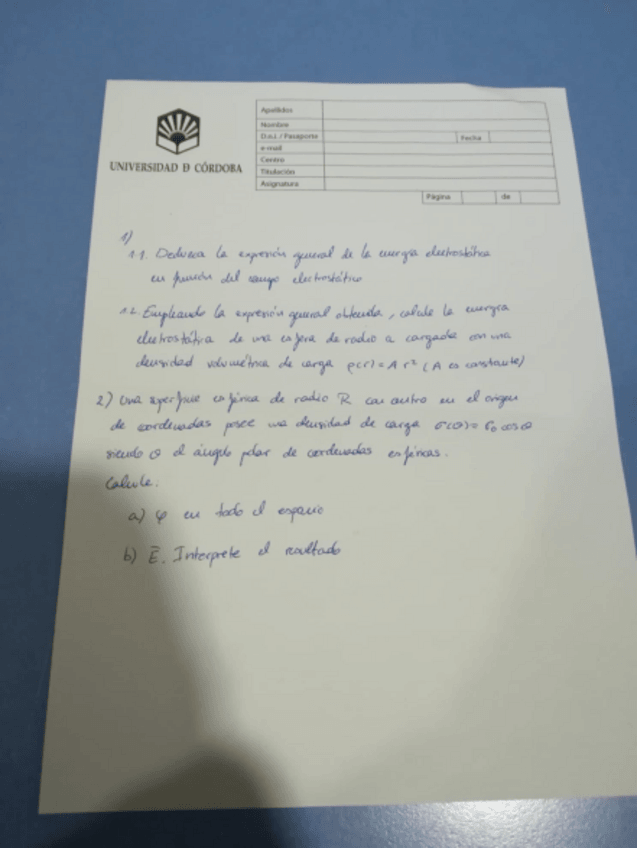 UNIVERSIDAD Ð CÓRDOBA
Apellidos
Nombre
D.n.i. / Pasaporte
Fecha
e-mail
Centro
Titulación
Asignatura
Página de
1)
1.1. Deduzca la expresión general de la energía electrostática
en función del campo electrostático
1.2. Empleando la expresión general obtenida, calcule la energía
electrostática de una esfera de radio a cargada con una
densidad volumétrica de carga ρ(r) = A r² (A es constante)
2) Una superficie esférica de radio R con centro en el origen
de coordenadas posee una densidad de carga σ(θ) = σ₀ cos θ
siendo θ el ángulo polar de coordenadas esféricas.
Calcule.
a) φ en todo el espacio
b) E̅. Interprete el resultado